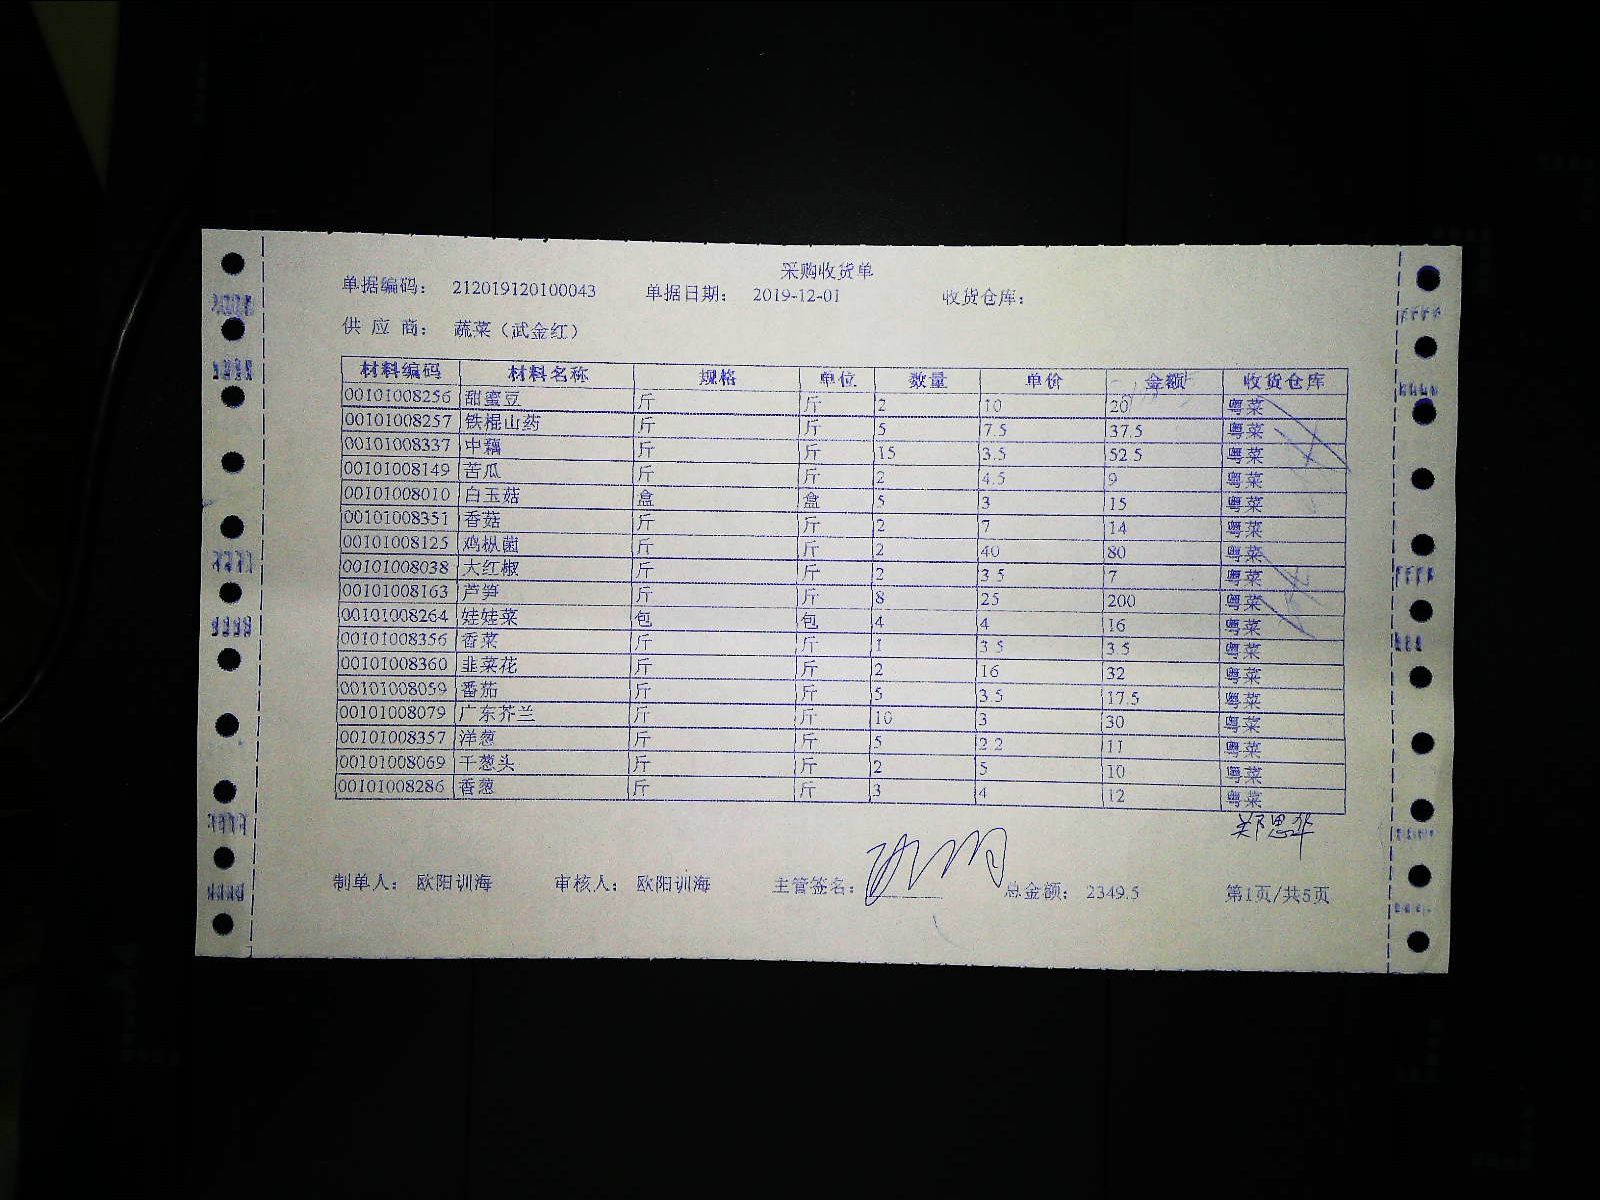 采购收货单
单据编码： 212019120100043 单据日期： 2019-12-01 收货仓库：
供 应 商： 蔬菜（武金红）
材料编码 材料名称 规格 单位 数量 单价 金额 收货仓库
00101008256 甜蜜豆 斤 斤 2 10 20 粤菜
00101008257 铁棍山药 斤 斤 5 7.5 37.5 粤菜
00101008337 中藕 斤 斤 15 3.5 52.5 粤菜
00101008149 苦瓜 斤 斤 2 4.5 9 粤菜
00101008010 白玉菇 盒 盒 5 3 15 粤菜
00101008351 香菇 斤 斤 2 7 14 粤菜
00101008125 鸡枞菌 斤 斤 2 40 80 粤菜
00101008038 大红椒 斤 斤 2 3.5 7 粤菜
00101008163 芦笋 斤 斤 8 25 200 粤菜
00101008264 娃娃菜 包 包 4 4 16 粤菜
00101008356 香菜 斤 斤 1 3.5 3.5 粤菜
00101008360 韭菜花 斤 斤 2 16 32 粤菜
00101008059 番茄 斤 斤 5 3.5 17.5 粤菜
00101008079 广东芥兰 斤 斤 10 3 30 粤菜
00101008357 洋葱 斤 斤 5 2.2 11 粤菜
00101008069 干葱头 斤 斤 2 5 10 粤菜
00101008286 香葱 斤 斤 3 4 12 粤菜
郑思华
制单人： 欧阳训海 审核人： 欧阳训海 主管签名： 总金额： 2349.5 第1页/共5页